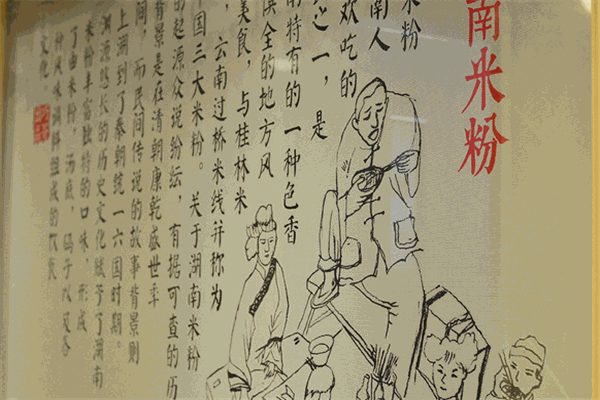 南米粉
米粉
南人
欢吃的
之一，是
南特有的一种色香
俱全的地方风
美食，与桂林米
，云南过桥米线并称为
中国三大米粉。关于湖南米粉
的起源众说纷纭，有据可查的历
背景是在清朝康乾盛世年
间，而民间传说的故事背景则
上溯到了秦朝统一六国时期。
渊源悠长的历史文化赋予了湖南
米粉丰富独特的口味，形成
了由米粉，汤底，码子以及各
种风味调料组成的饮食
文化。